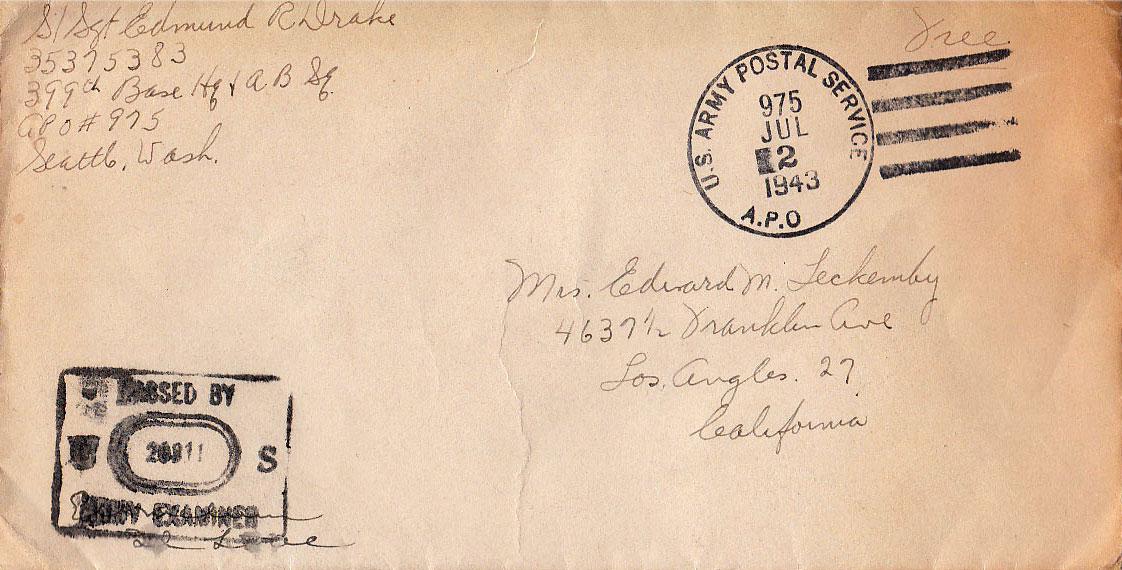 S/Sgt Edmund R Drake
35375383
399th Base Hq & A B Sq.
APO # 975
Seattle, Wash.
Free
U.S. ARMY POSTAL SERVICE
975
JUL
2
1943
A.P.O
Mrs. Edward M. Leckemby
4637½ Franklin Ave
Los. Angles. 27
California
PASSED BY
S
ARMY EXAMINER